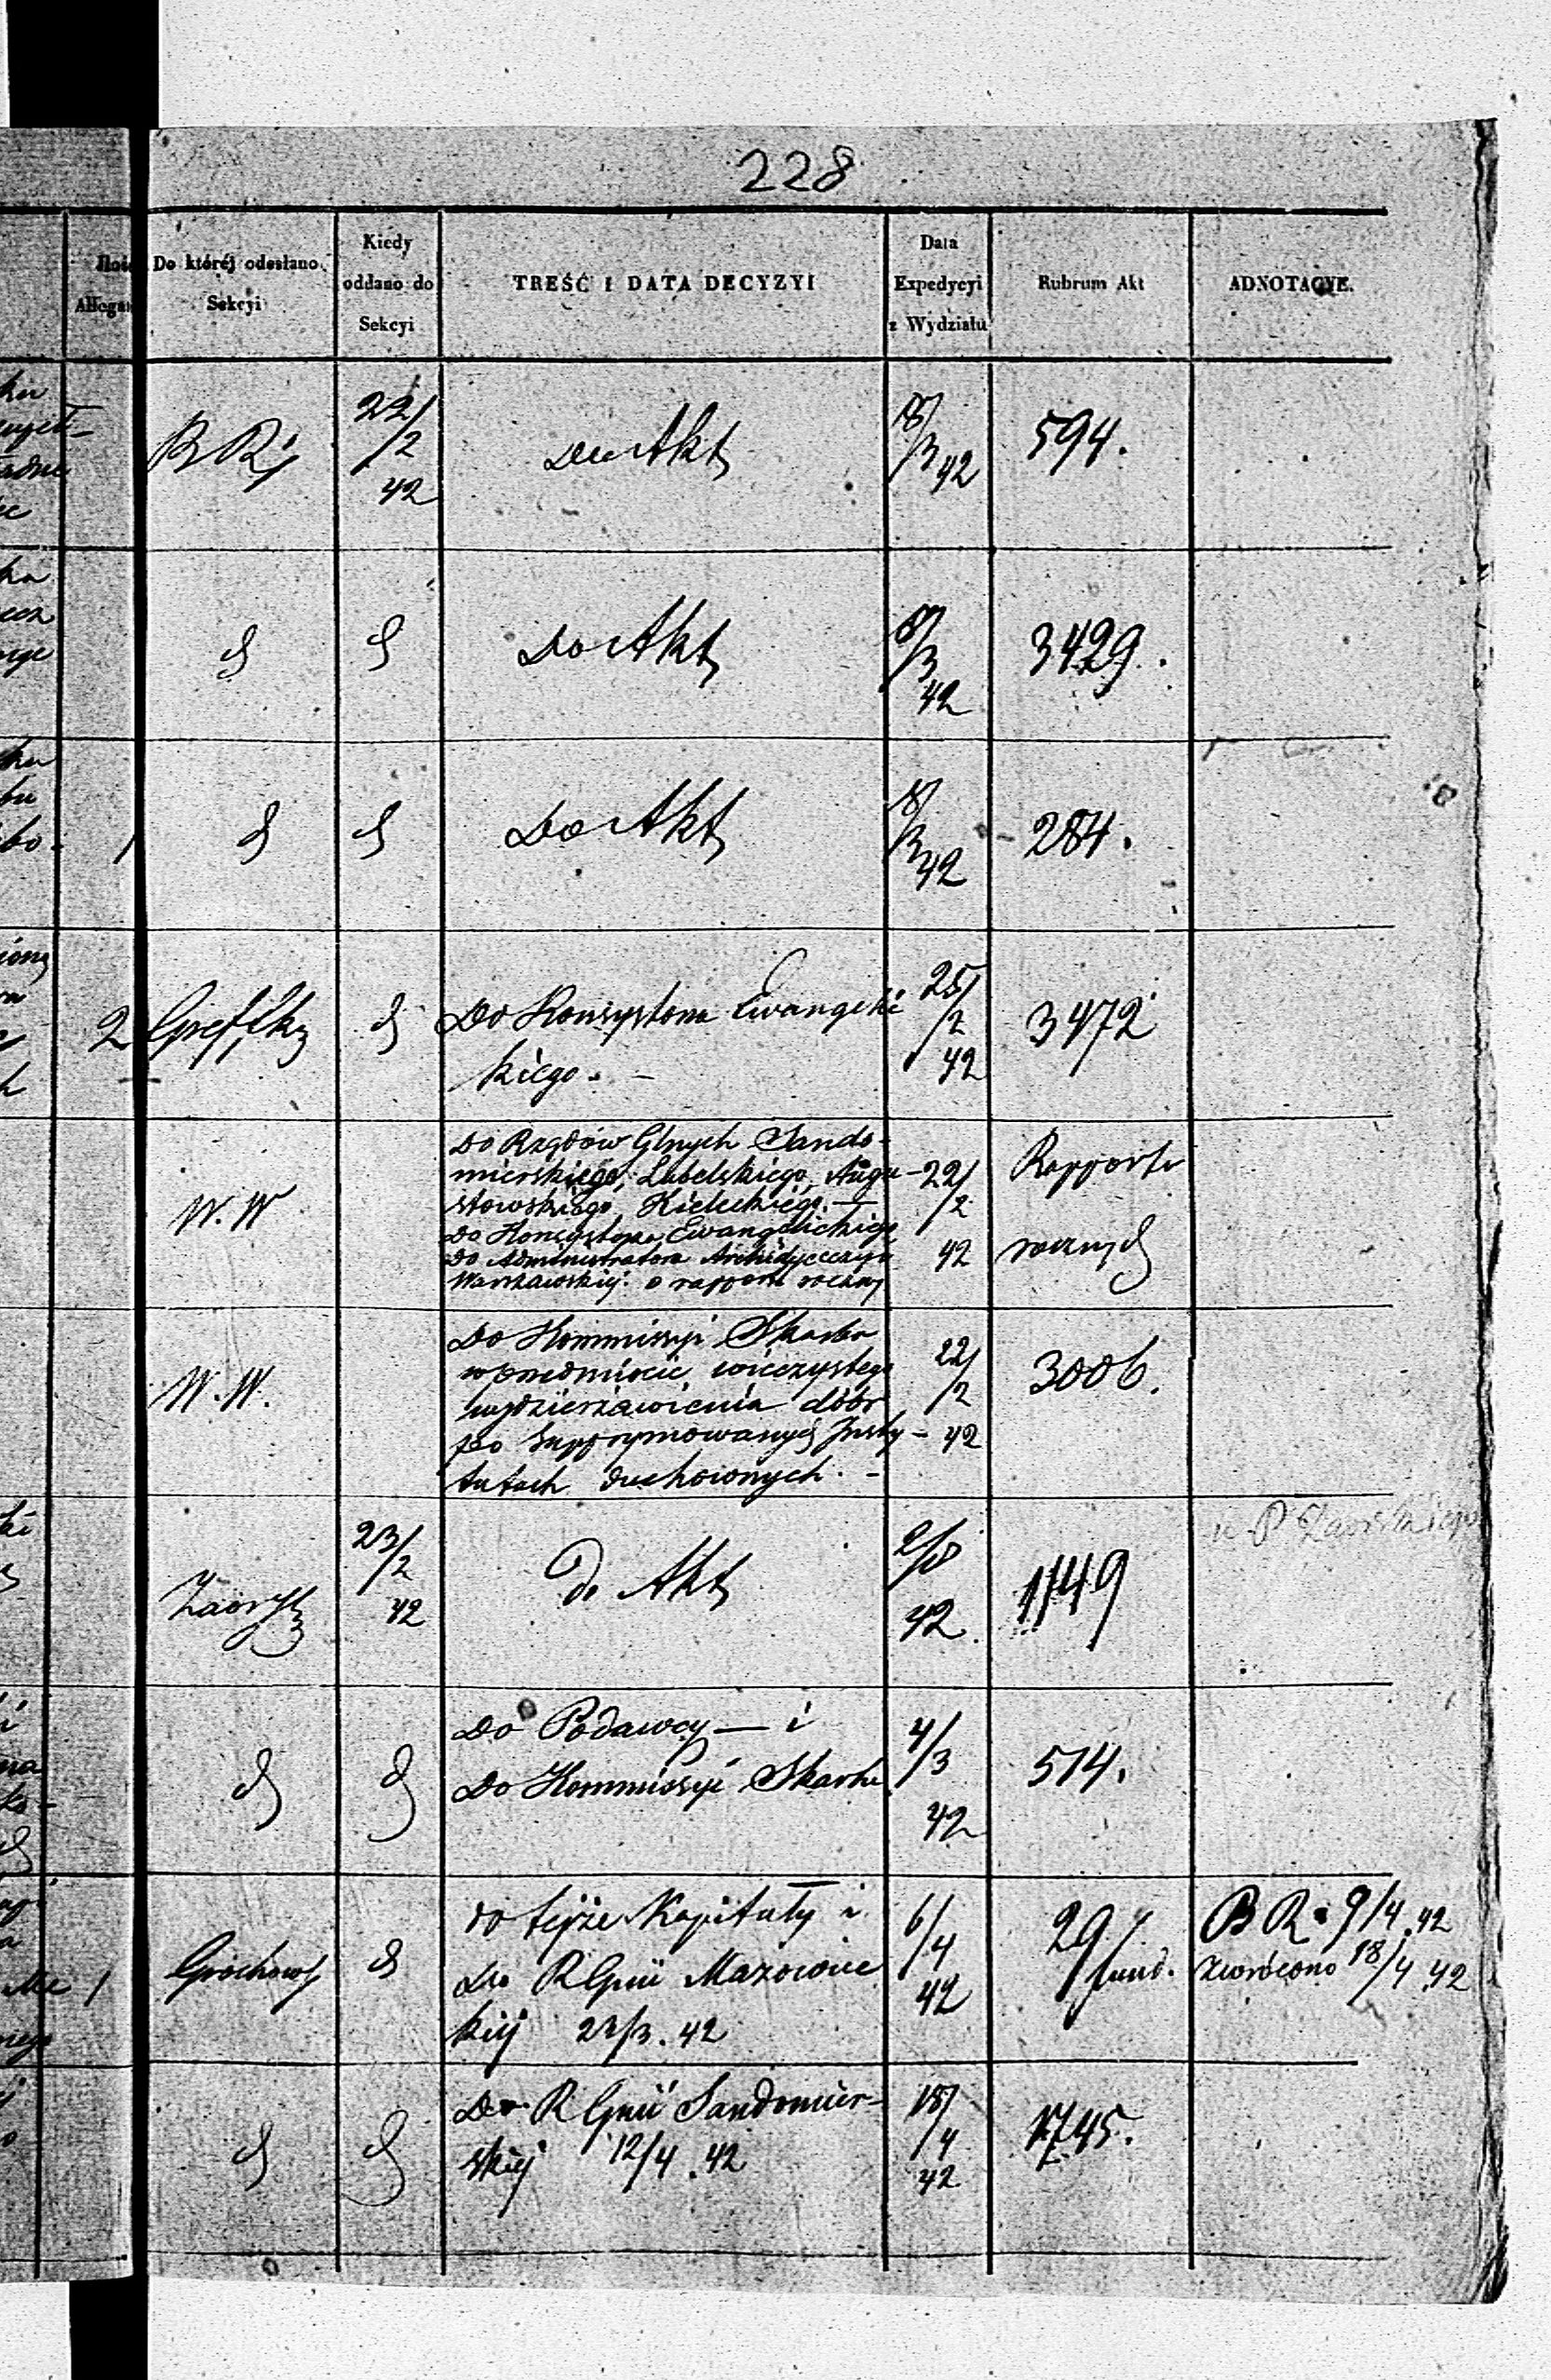 228
Ilość
Do któréj odesłano
Sekcyi
Kiedy
oddano do
Sekcyi
TREŚĆ I DATA DECYZYI
Data
Expedycyi
z Wydziału
Rubrum Akt
ADNOTACYE.
B R
22/2 42
Do Akt
8/3 42
594.
Do Akt
8/3 42
3429.
1
Do Akt
8/3 42
284.
2
Do Konsystorza Ewangelic
kiego. -
25/2 42
3472
W. W
Do Rządów Glnych Sando-
mierskiego, Lubelskiego, Augu-
stowskiego, Kieleckiego. —
Do Konsystorza Ewangelickiego
Do Administratora Archidyecezyi
Warszawskiej o rapport roczny
22/2 42
Rapporta
roczne
W. W.
Do Kommissyi Skarbu
w przedmiocie wieczystego
wydzierżawienia dóbr
po Supprymowanych Insty-
tutach duchownych. -
22/2 42
3006.
23/2 42
do Akt
42
1149
Do Podawcy — i
Do Kommissyi Skarbu
4/3 42
514.
1
Grochows
do tejże Kapituły i
Do R Gnii Mazowiec
kiej 23/3. 42
6/4 42
29
fund.
B R. 9/4. 42
zwrócono 18/4 42
Do R Gnii Sandomier-
skiej 12/4. 42
18/4 42
1745.